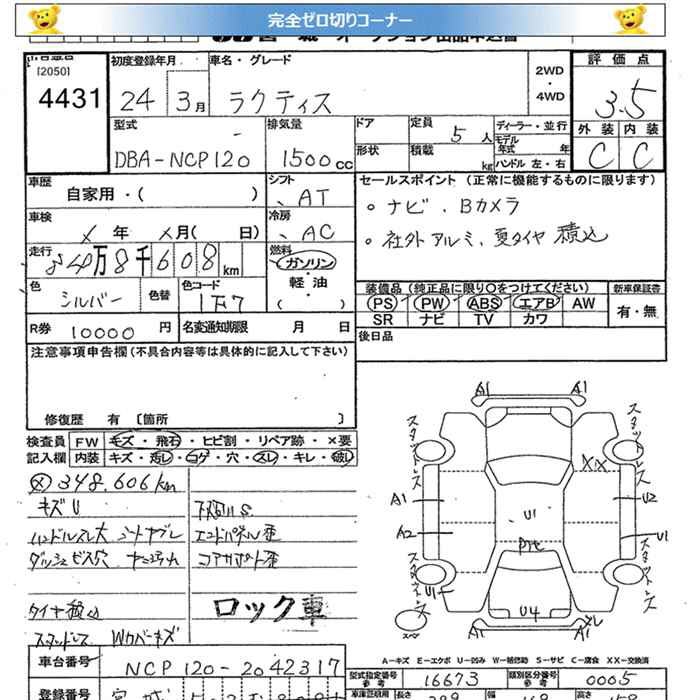 完全ゼロ切りコーナー
[2050]
4431
初度登録年月
24 3月
車名・グレード
ラクティス
2WD
・
4WD
評価点
3.5
外装 内装
C C
型式
DBA-NCP120
排気量
1500cc
ドア
形状
定員
5人
積載
kg
ディーラー・並行
モデル年式 年
ハンドル 左・右
車歴
自家用・( )
シフト
AT
車検
×年 ×月( 日)
冷房
AC
走行
34万8千608km
燃料
ガソリン
軽・油
( )
色
シルバー
色替
色コード
1F7
R券 10000円
名変通知期限 月 日
セールスポイント (正常に機能するものに限ります)
○ ナビ、Bカメラ
○ 社外アルミ、夏タイヤ積込
装備品(純正品に限り○をつけてください)
PS PW ABS エアB AW
SR ナビ TV カワ
新車保証書
有・無
後日品
注意事項申告欄(不具合内容等は具体的に記入して下さい)
修復歴 有 〔箇所 〕
検査員 FW キズ・飛石・ヒビ割・リペア跡・×要
記入欄 内装 キズ・汚し・コゲ・穴・スレ・キレ・破し
348.606km
キズU
ハンドルスレ大 シートヤブレ
エンドパネル歪
ダッシュビス穴
コアサポート歪
タイヤ積込
スタッドレス Wカバーキズ
ロック車
A1 A1
スタッドレス スタッドレス
XX
A1 U2
U1
A2 U1
スタッドレス スタッドレス
U1
U4
A1 A1
A-キズ E-エクボ U-凹み W-補修跡 S-サビ C-腐食 XX-交換済
車台番号
NCP120-2042317
型式指定番号
参考
16673
類別区分番号
参考
0005
登録番号
宮城
長さ 幅 高さ